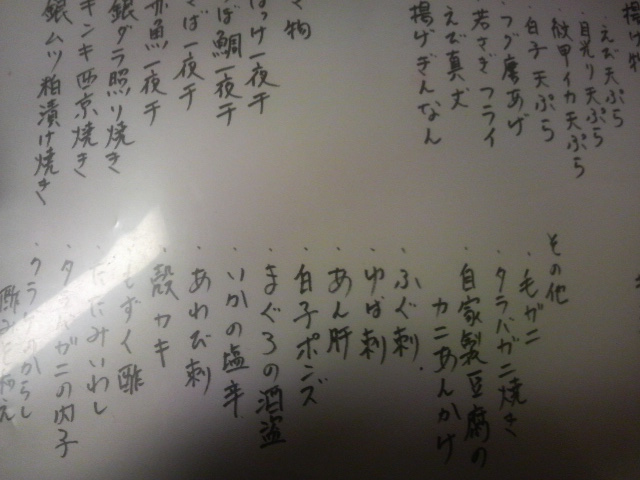 揚げ物
・えび天ぷら
・目光り天ぷら
・紋甲イカ天ぷら
・白子天ぷら
・つぶ磨あげ
・若さぎフライ
えび真丈
揚げぎんなん
物
ほっけ一夜干
ば鯛一夜干
さば一夜干
赤魚一夜干
銀ダラ照り焼き
キンキ西京焼き
銀ムツ粕漬け焼き
その他
・毛ガニ
・タラバガニ焼き
・自家製豆腐の
カニあんかけ
・ふぐ刺
・ゆば刺
・あん肝
・白子ポンズ
・まぐろの酒盗
・いかの塩辛
・あわび刺
・殻カキ
・もずく酢
・たたみいわし
・タラバガニの内子
・クラゲのからし
酢みそ和え